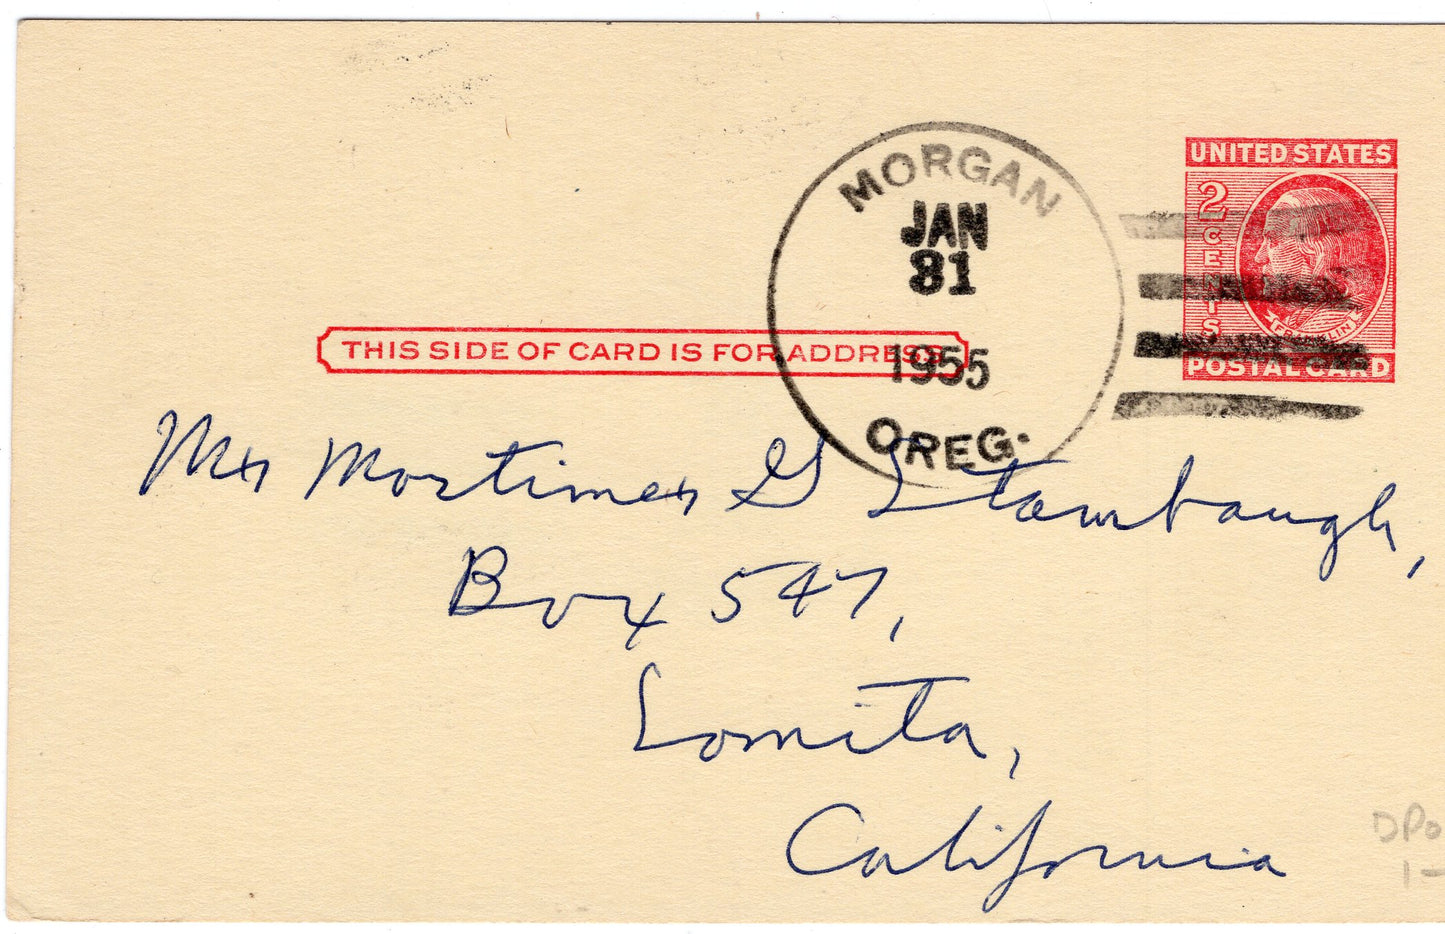 MORGAN
JAN
31
1955
OREG.
UNITED STATES
2 CENTS
FRANKLIN
POSTAL CARD
THIS SIDE OF CARD IS FOR ADDRESS
Mr Mortimer G Stambaugh,
Box 547,
Lomita,
California
DPO
1-